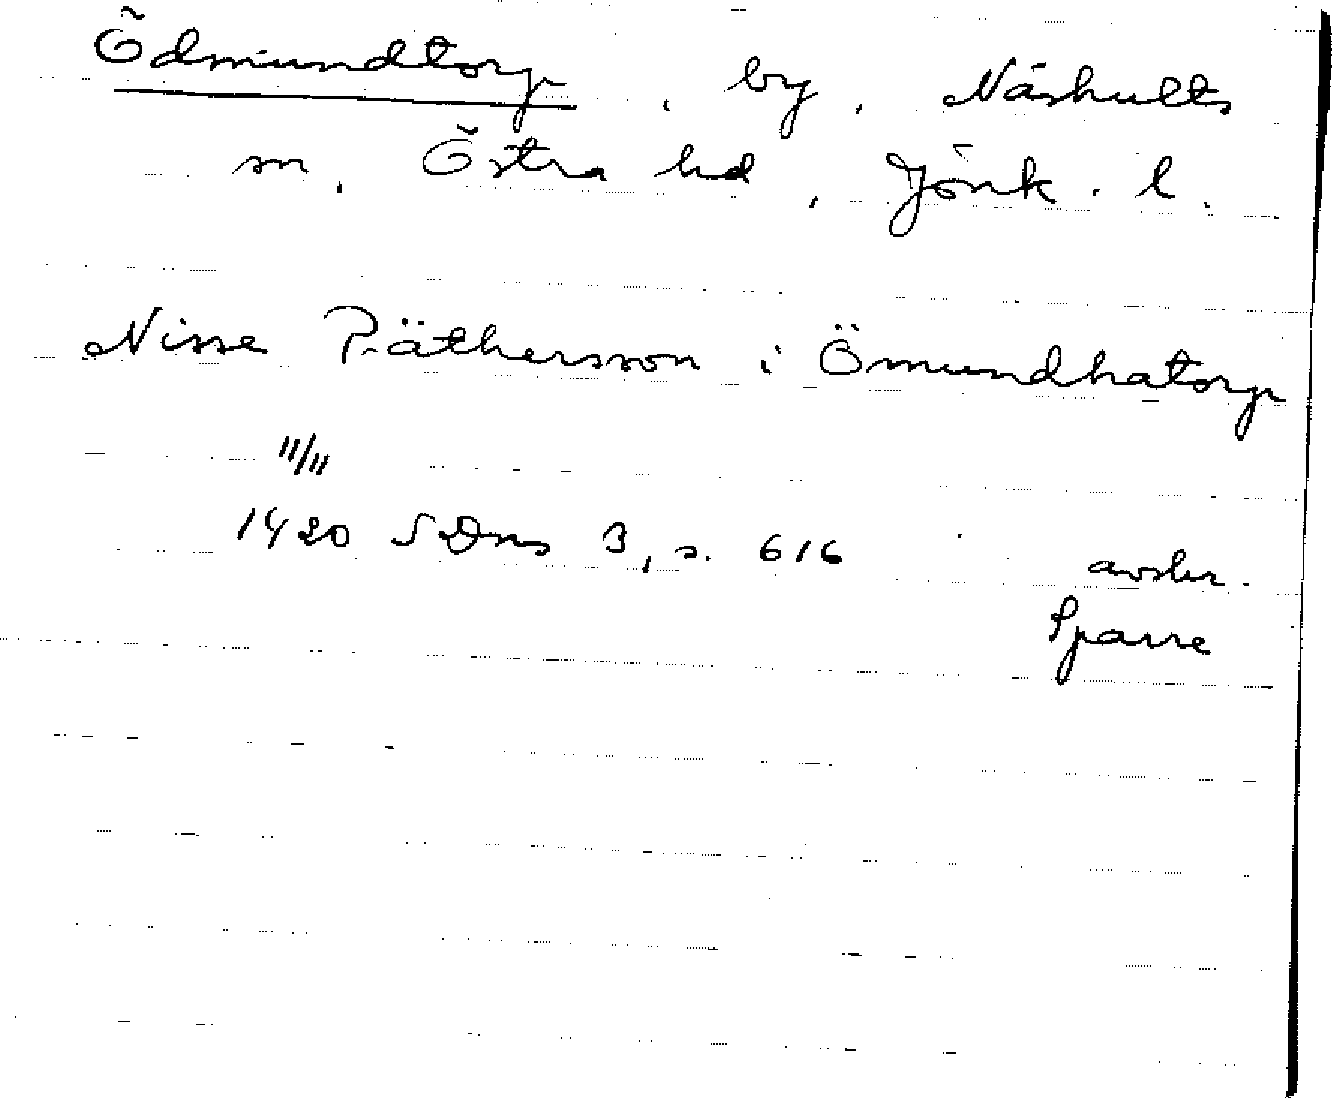 Ödmundtorp, by, Näshults
sn, Östra hd, Jönk. l.
Nisse Päthersson i Ömundhatorp
11/11
1420 SDns 3, s. 616 avskr.
Sparre